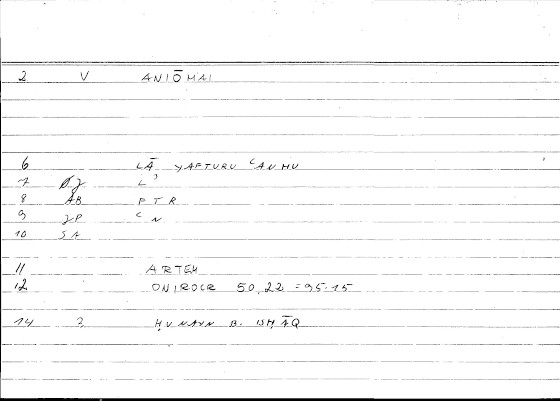 2 V ANIŌMAI
6 LĀ YAFTURU ʿANHU
7 ØZ Lʾ
8 AB PTR
9 ZP ʿN
10 SA
11 ARTEM
12 ONIROCR 50,22 = 95.15
14 2 ḤUNAYN B. ISḤĀQ